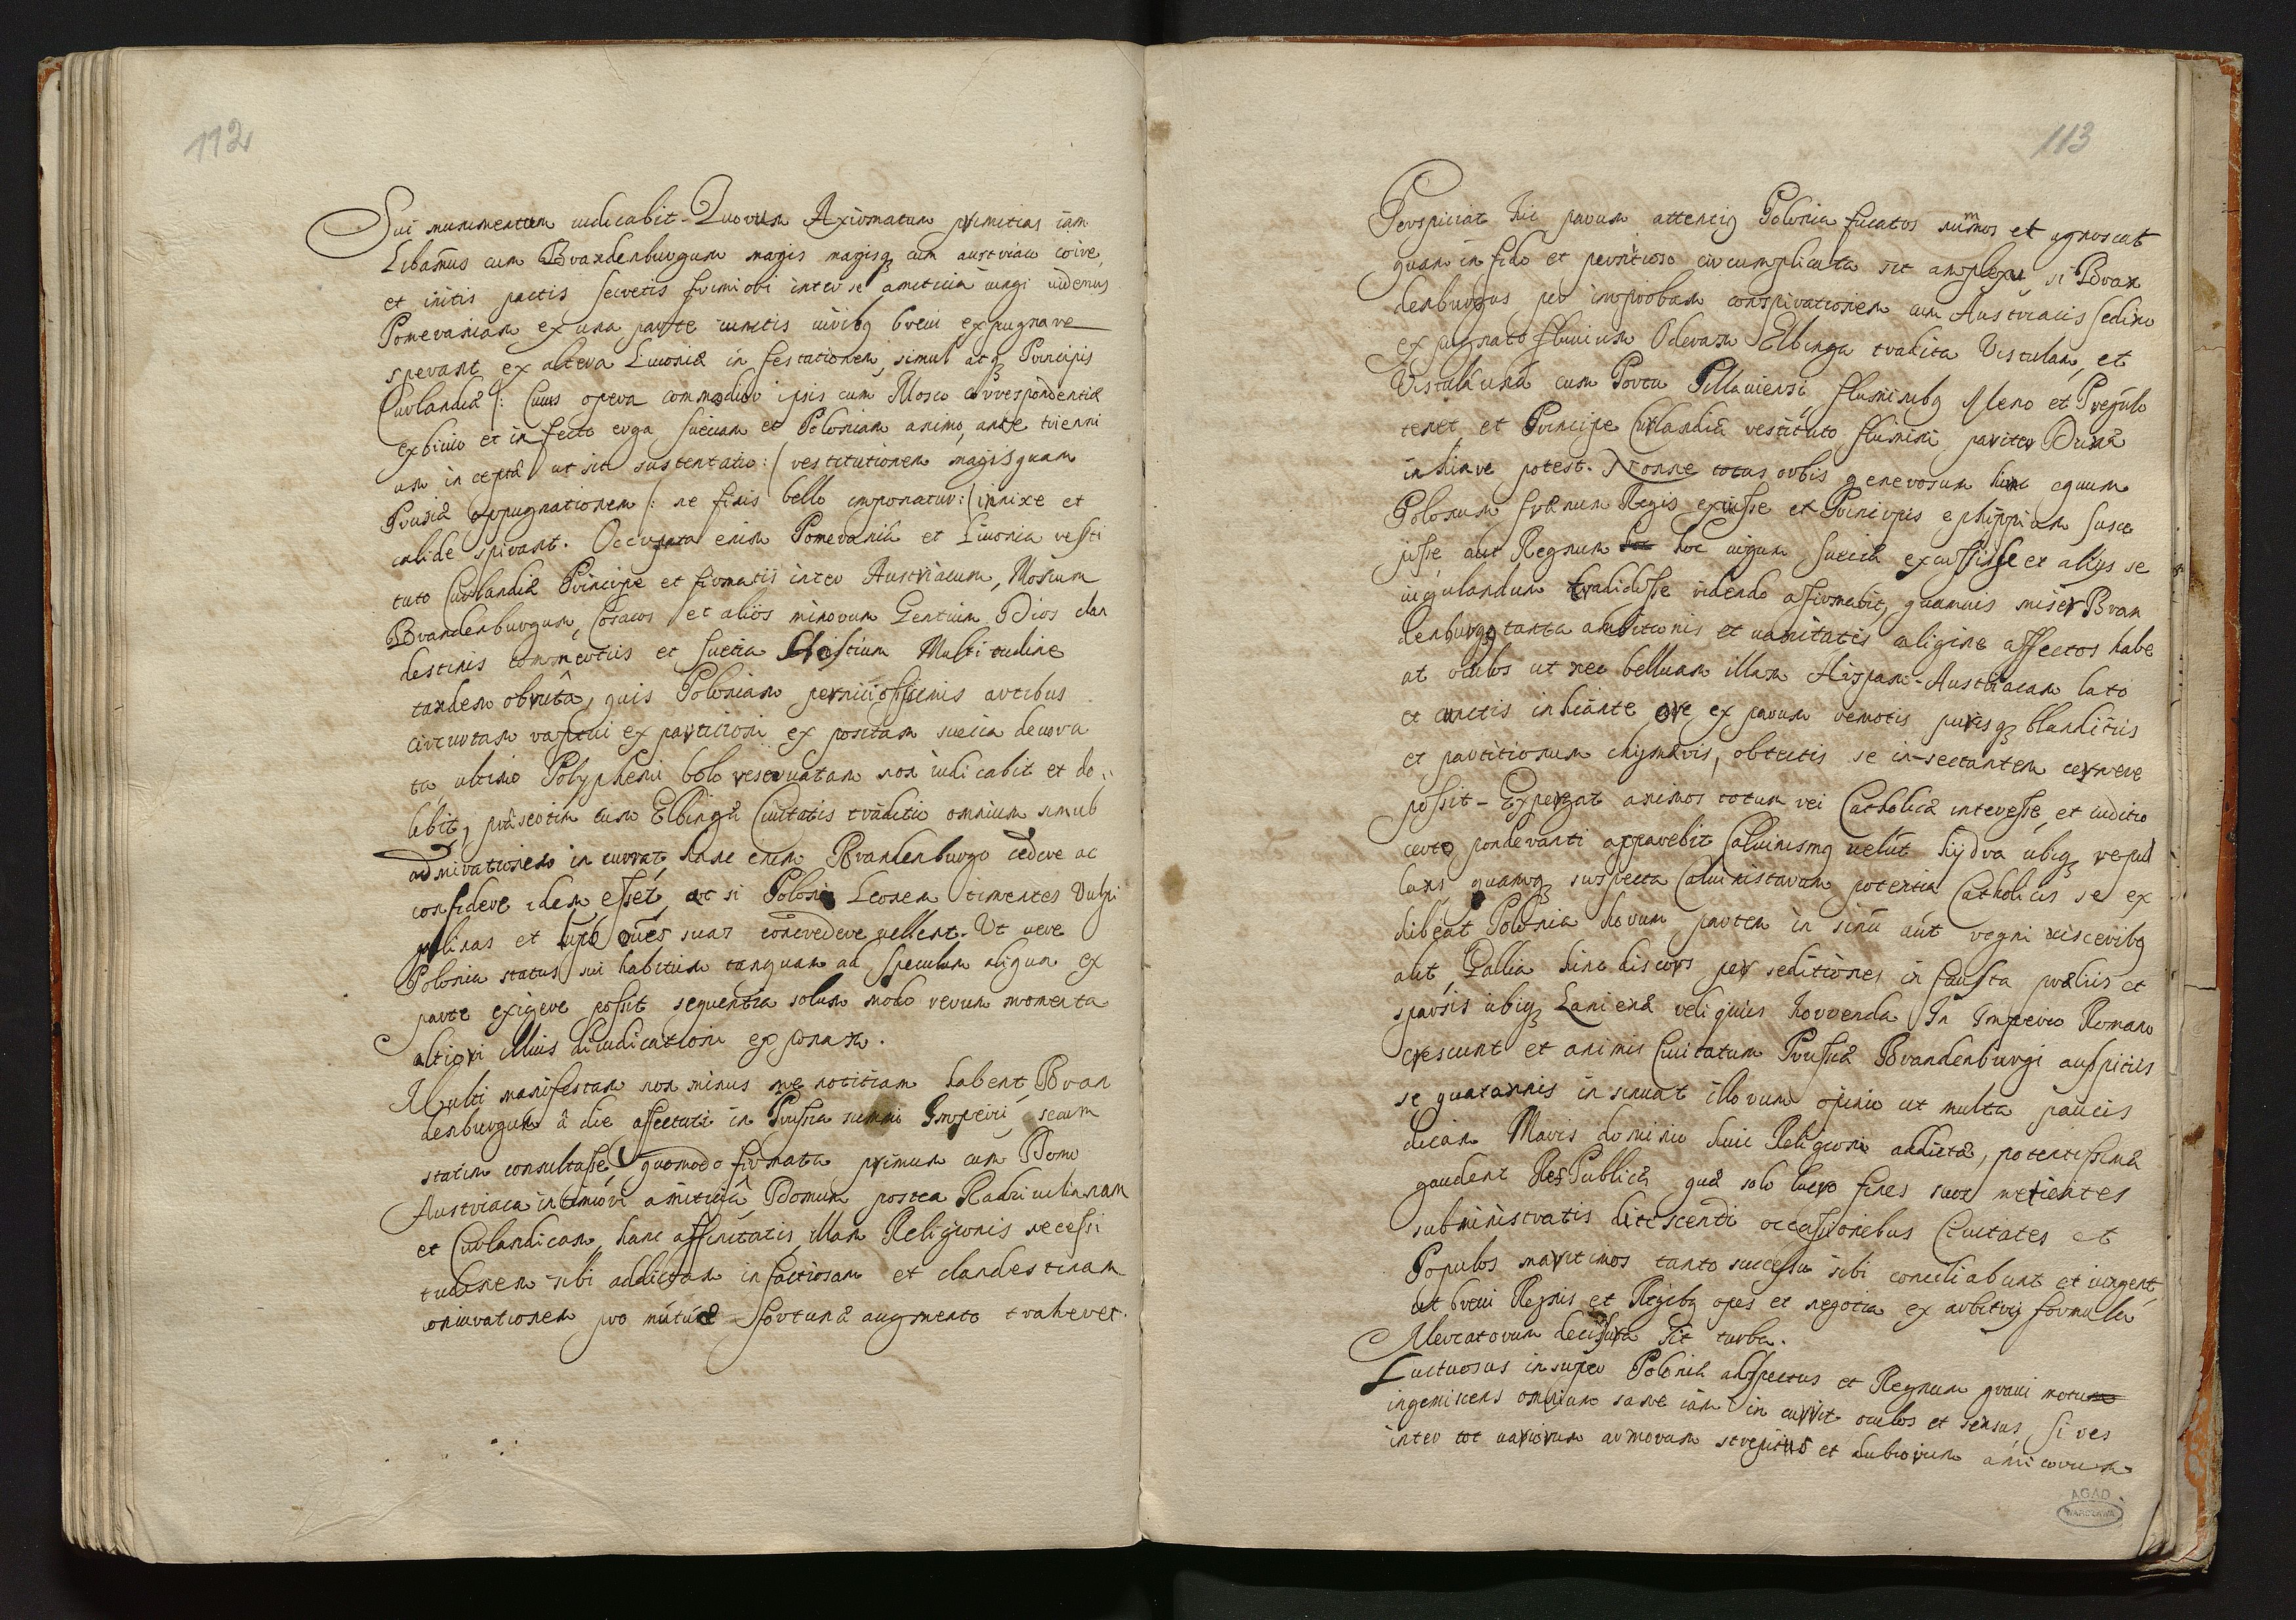 112
Sui munimentum iudicabit. Quorum Axiomatum primitias iam
Libamus cum Brandenburgum magis magisq cum austriaco coire,
et initis pactis secretis firmiori inter se amicitia iungi uidemus
Pomeraniam ex una parte iunctis uiribq breui expugnare
sperant ex altera Liuoniæ in festationem, simul atq Principis
Curlandiæ /: Cuius opera commodior ipsis cum Mosco correspondentiæ
ex biuio et in fecto erga Sueciam et Poloniam animo, ante trienni
um in cepta ut sit sustentatio :/ restitutionem magis quam
Prusiæ oppugnationem /: ne finis bello imponatur :/ innixe et
calide spirant. Occupata enim Pomerania et Liuonia resti
tuto Curlandiæ Principe et firmatis inter Austriacum, Moscum
Brandenburgum, Cosacos et alios minorum Gentium Dios clan
destinis commertiis et Suetia Hostium Multitudine
tandem obruta, quis Poloniam perniciosissimis artibus
circuitam raptui ex partitioni ex positam suecia deuora
ta, ultimo Polyphemi bolo reseruatam non iudicabit et do
lebit, præsertim cum Elbingæ Ciuitatis traditio omnium simul
admirationem in currat, hanc enim Brandenburgo cedere ac
confidere idem esset, ac si Poloni Leonem timentes Vulpi
galinas et lupo oues suas concredere uellent. Ut uero
Polonia status sui habitum tanquam ad speculum aliqua ex
parte exigere possit sequentia solum modo rerum momenta
altiori illius diiudicationi exponam.
Multi manifestam non minus me notitiam habent, Bran
denburgum a die affectati in Prussia summi Imperii, secum
statim consultasse quomodo firmata primum cum Domo
Austriaca intimiori amicitia Domum postea Radziuilianam
et Curlandicam, hanc affinitatis, illam Religionis necessi
tudinem sibi addictam in factiosam et clandestinam
coniurationem pro mutuæ fortunæ augmento traheret.
113
Perspiciat hic parum attentiq Polonia fucatos nummos et agnoscat
quam in fido et pernitioso circumplicata sit amplexu, si Bran
denburgus per improbam conspirationem cum Austriacis Sedino
expugnato fluuium Oderam Elbinga tradita Vistulam, et
Vistula una cum Portu Pillauiensi fluminibq Meno et Pregulo
tenet et Principe Curlandiæ restituto flumini pariter Dunæ
inhiare potest. Nonne totus orbis generosum hunc equum
Polonum frænum Regis exuisse et Principis ephippium susce
pisse aut Regnum hoc iugum Sueciæ excussisse et aliis se
iugulandum tradidisse ridendo affirmabit, quamuis miser Bran
denburgq tanta ambitionis et uanitatis caligine affectos habe
at oculos ut nec belluam illam Hispan-Austriacam lato
et cunctis inhiante ore ex parum remotis purisq blanditiis
et partitionum chymæris, obtectis se in-sectantem cernere
possit. Expergat animos totum rei Catholicæ interesse, et iuditio
certo ponderanti apparebit Caluinismq uelut hydra ubiq repul
lans quamq suspecta Caluinistarum potentia Catholicis se ex
hibeat Polonia horum partem in sinu aut regni uisceribq
alit, Gallia hinc discors per seditiones in fausta præliis et
sparsis ubiq Lanienæ reliquiis horrenda In Imperio Romano
crescunt et animis Ciuitatum Prussiæ Brandenburgi auspiciis
se quotannis in sinuat illorum opinio ut multa paucis
dicam Maris dominio huic Religioni addictæ, potentissimæ
gaudent Res Publicæ quæ solo lucro fines suos metientes
subministratis ditescendi occasionibus Ciuitates et
Populos maritimos tanto successu sibi conciliabunt et iungent,
ut breui Regnis et Regibq opes et negotia ex arbitrii formula
Mercatorum decisura sit turba.
Luctuosus insuper Poloniæ aspectus et Regnum graui motu
ingemiscens omnium sane iam in currit oculos et sensus, si res
inter tot uariorum armorum strepitus et dubiorum amicorum
AGAD
WARSZAWA